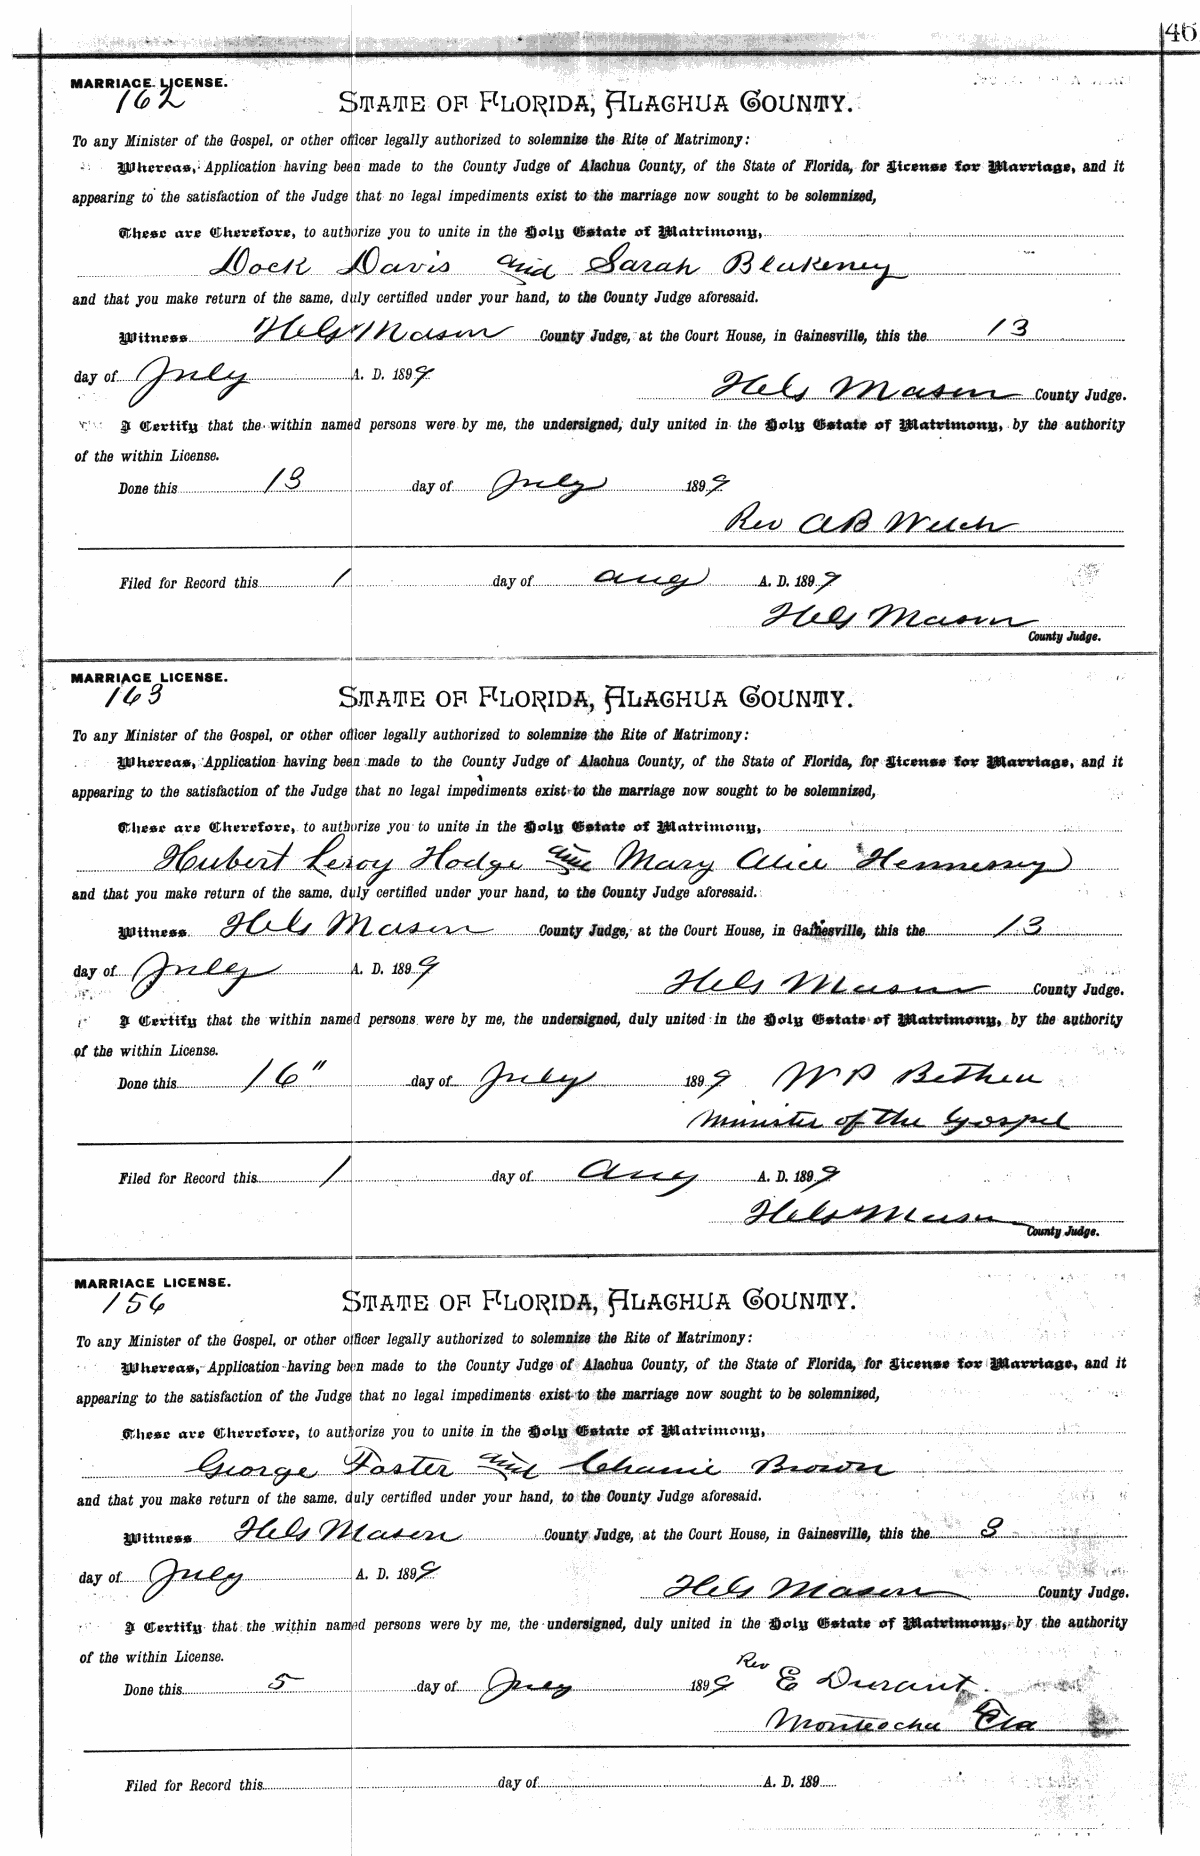 46
MARRIAGE LICENSE.
162
STATE OF FLORIDA, ALACHUA COUNTY.
To any Minister of the Gospel, or other officer legally authorized to solemnize the Rite of Matrimony:
Whereas, Application having been made to the County Judge of Alachua County, of the State of Florida, for License for Marriage, and it
appearing to the satisfaction of the Judge that no legal impediments exist to the marriage now sought to be solemnized,
These are Therefore, to authorize you to unite in the Holy Estate of Matrimony,
Dock Davis and Sarah Blakeney
and that you make return of the same, duly certified under your hand, to the County Judge aforesaid.
Witness Hels Mason County Judge, at the Court House, in Gainesville, this the 13
day of July A. D. 1899
Hels Mason County Judge.
I Certify that the within named persons were by me, the undersigned, duly united in the Holy Estate of Matrimony, by the authority
of the within License.
Done this 13 day of July 1899
Rev AB Welch
Filed for Record this 1 day of Aug A. D. 1899
Hels Mason
County Judge.
MARRIAGE LICENSE.
163
STATE OF FLORIDA, ALACHUA COUNTY.
To any Minister of the Gospel, or other officer legally authorized to solemnize the Rite of Matrimony:
Whereas, Application having been made to the County Judge of Alachua County, of the State of Florida, for License for Marriage, and it
appearing to the satisfaction of the Judge that no legal impediments exist to the marriage now sought to be solemnized,
These are Therefore, to authorize you to unite in the Holy Estate of Matrimony,
Hubert Leroy Hodge and Mary Alice Hennessy
and that you make return of the same, duly certified under your hand, to the County Judge aforesaid.
Witness Hels Mason County Judge, at the Court House, in Gainesville, this the 13
day of July A. D. 1899
Hels Mason County Judge.
I Certify that the within named persons were by me, the undersigned, duly united in the Holy Estate of Matrimony, by the authority
of the within License.
Done this 16" day of July 1899 W P Bethea
Minister of the Gospel
Filed for Record this 1 day of Aug A. D. 1899
Hels Mason
County Judge.
MARRIAGE LICENSE.
156
STATE OF FLORIDA, ALACHUA COUNTY.
To any Minister of the Gospel, or other officer legally authorized to solemnize the Rite of Matrimony:
Whereas, Application having been made to the County Judge of Alachua County, of the State of Florida, for License for Marriage, and it
appearing to the satisfaction of the Judge that no legal impediments exist to the marriage now sought to be solemnized,
These are Therefore, to authorize you to unite in the Holy Estate of Matrimony,
George Foster and Chanie Brown
and that you make return of the same, duly certified under your hand, to the County Judge aforesaid.
Witness Hels Mason County Judge, at the Court House, in Gainesville, this the 3
day of July A. D. 1899
Hels Mason County Judge.
I Certify that the within named persons were by me, the undersigned, duly united in the Holy Estate of Matrimony, by the authority
of the within License.
Done this 5 day of July 1899 Rev E Durant.
Monteocha Fla
Filed for Record this day of A. D. 189